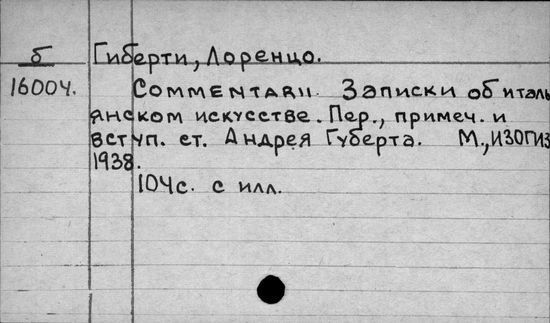 б Гиберти, Лоренцо.
16004. COMMENTARII. Записки об италь
янском искусстве. Пер., примеч. и
вступ. ст. Андрея Губерта. М., ИЗОГИЗ
1938.
104с. с илл.